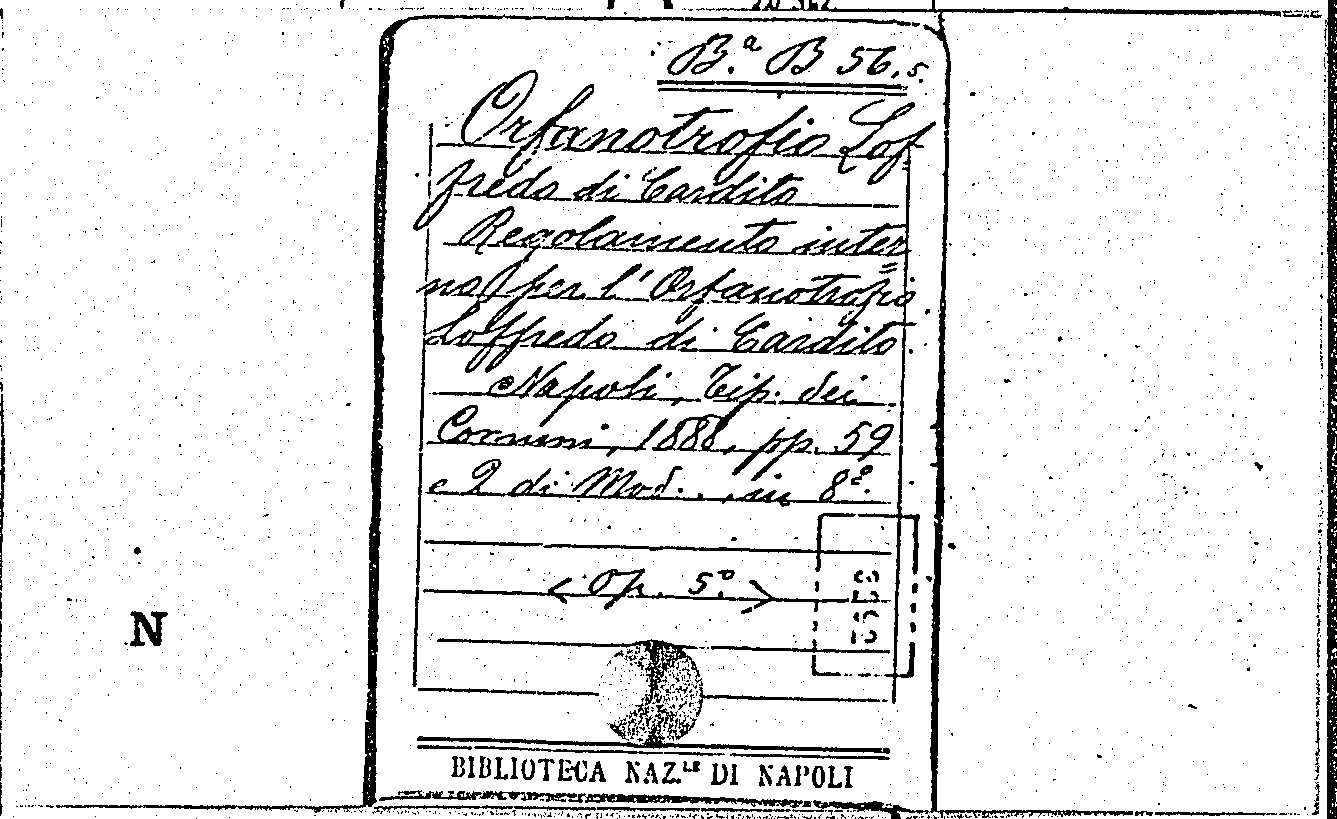 B.ª B 56.5.
Orfanotrofio Lof
fredo di Cardito
Regolamento inter=
no per l'Orfanotrofio
Loffredo di Cardito.
Napoli, Tip. dei
Comuni, 1888, pp. 59
e 2 di Mod., in 8º.
< Op. 5º. >
N
BIBLIOTECA NAZ.LE DI NAPOLI